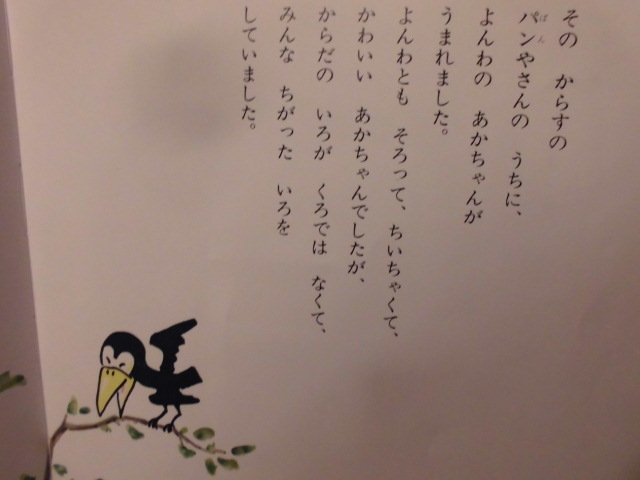 その　からすの
パンやさんの　うちに、
よんわの　あかちゃんが
うまれました。
よんわとも　そろって、ちいちゃくて、
かわいい　あかちゃんでしたが、
からだの　いろが　くろでは　なくて、
みんな　ちがった　いろを
していました。